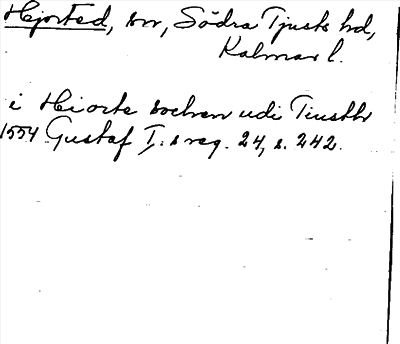 Hjorted, sn, Södra Tjusts hd,
Kalmar l.
i Hiorte sochen udi Tiusth
1554 Gustaf I:s reg. 24, s. 242.